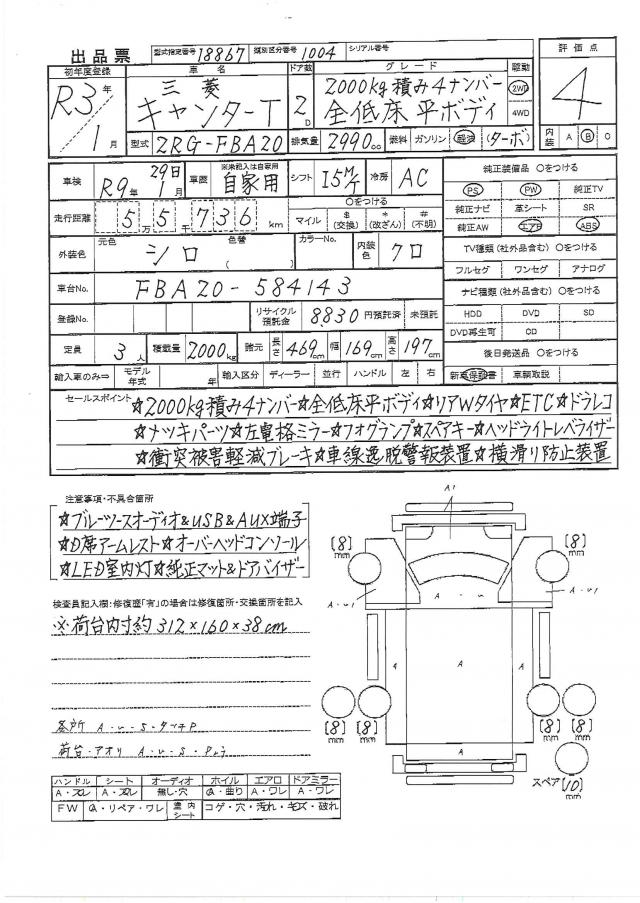 出品票 型式指定番号 18867 類別区分番号 1004 シリアル番号
初年度登録 車名 ドア数 グレード 駆動 評価点
R3年 1月 三菱 キャンターT 2D 2000kg積み4ナンバー 全低床 平ボディ 2WD 4WD 4
型式 2RG-FBA20 排気量 2990cc 燃料 ガソリン 軽油 (ターボ) 内装 A B C
車検 R9年 1月 29日 車歴 ※未記入は自家用 自家用 シフト I5M/T 冷房 AC 純正装備品 ○をつける
PS PW 純正TV
走行距離 5 5 7 3 6 km 万 千 ○をつける マイル $(交換) *(改ざん) #(不明) 純正ナビ 革シート SR
純正AW エアB ABS
外装色 元色 シロ 色替 ( ) カラーNo. 内装色 クロ TV種類(社外品含む) ○をつける
フルセグ ワンセグ アナログ
車台No. FBA20-584143 ナビ種類(社外品含む) ○をつける
登録No. リサイクル預託金 8830 円預託済 未預託 HDD DVD SD
DVD再生可 CD
定員 3人 積載量 2000kg 諸元 長さ 469cm 幅 169cm 高さ 197cm 後日発送品 ○をつける
輸入車のみ⇒ モデル年式 年 輸入区分 ディーラー 並行 ハンドル 左 右 新車保証書 車輌取説
セールスポイント ☆2000kg積み4ナンバー☆全低床平ボディ☆リアWタイヤ☆ETC☆ドラレコ
☆メッキパーツ☆左電格ミラー☆フォグランプ☆スペアキー☆ヘッドライトレベライザー
☆衝突被害軽減ブレーキ☆車線逸脱警報装置☆横滑り防止装置
注意事項・不具合箇所
☆ブルーツースオーディオ&USB&AUX端子
☆D席アームレスト☆オーバーヘッドコンソール
☆LED室内灯☆純正マット&ドアバイザー
検査員記入欄:修復歴「有」の場合は修復箇所・交換箇所を記入
※荷台内寸約312×160×38cm
各戸所 A・U・S・タッチP
荷台・アオリ A・U・S・Pムラ
A1
[8]mm [8]mm
A・U1 A・U A・U1
A A A
[8]mm [8]mm [8]mm [8]mm
スペア [10]mm
ハンドル シート オーディオ ホイル エアロ ドアミラー
A・スレ A・スレ 無し・穴 A・曲り A・ワレ A・ワレ
FW A・リペア・ワレ 室内シート コゲ・穴・汚れ・キズ・破れ